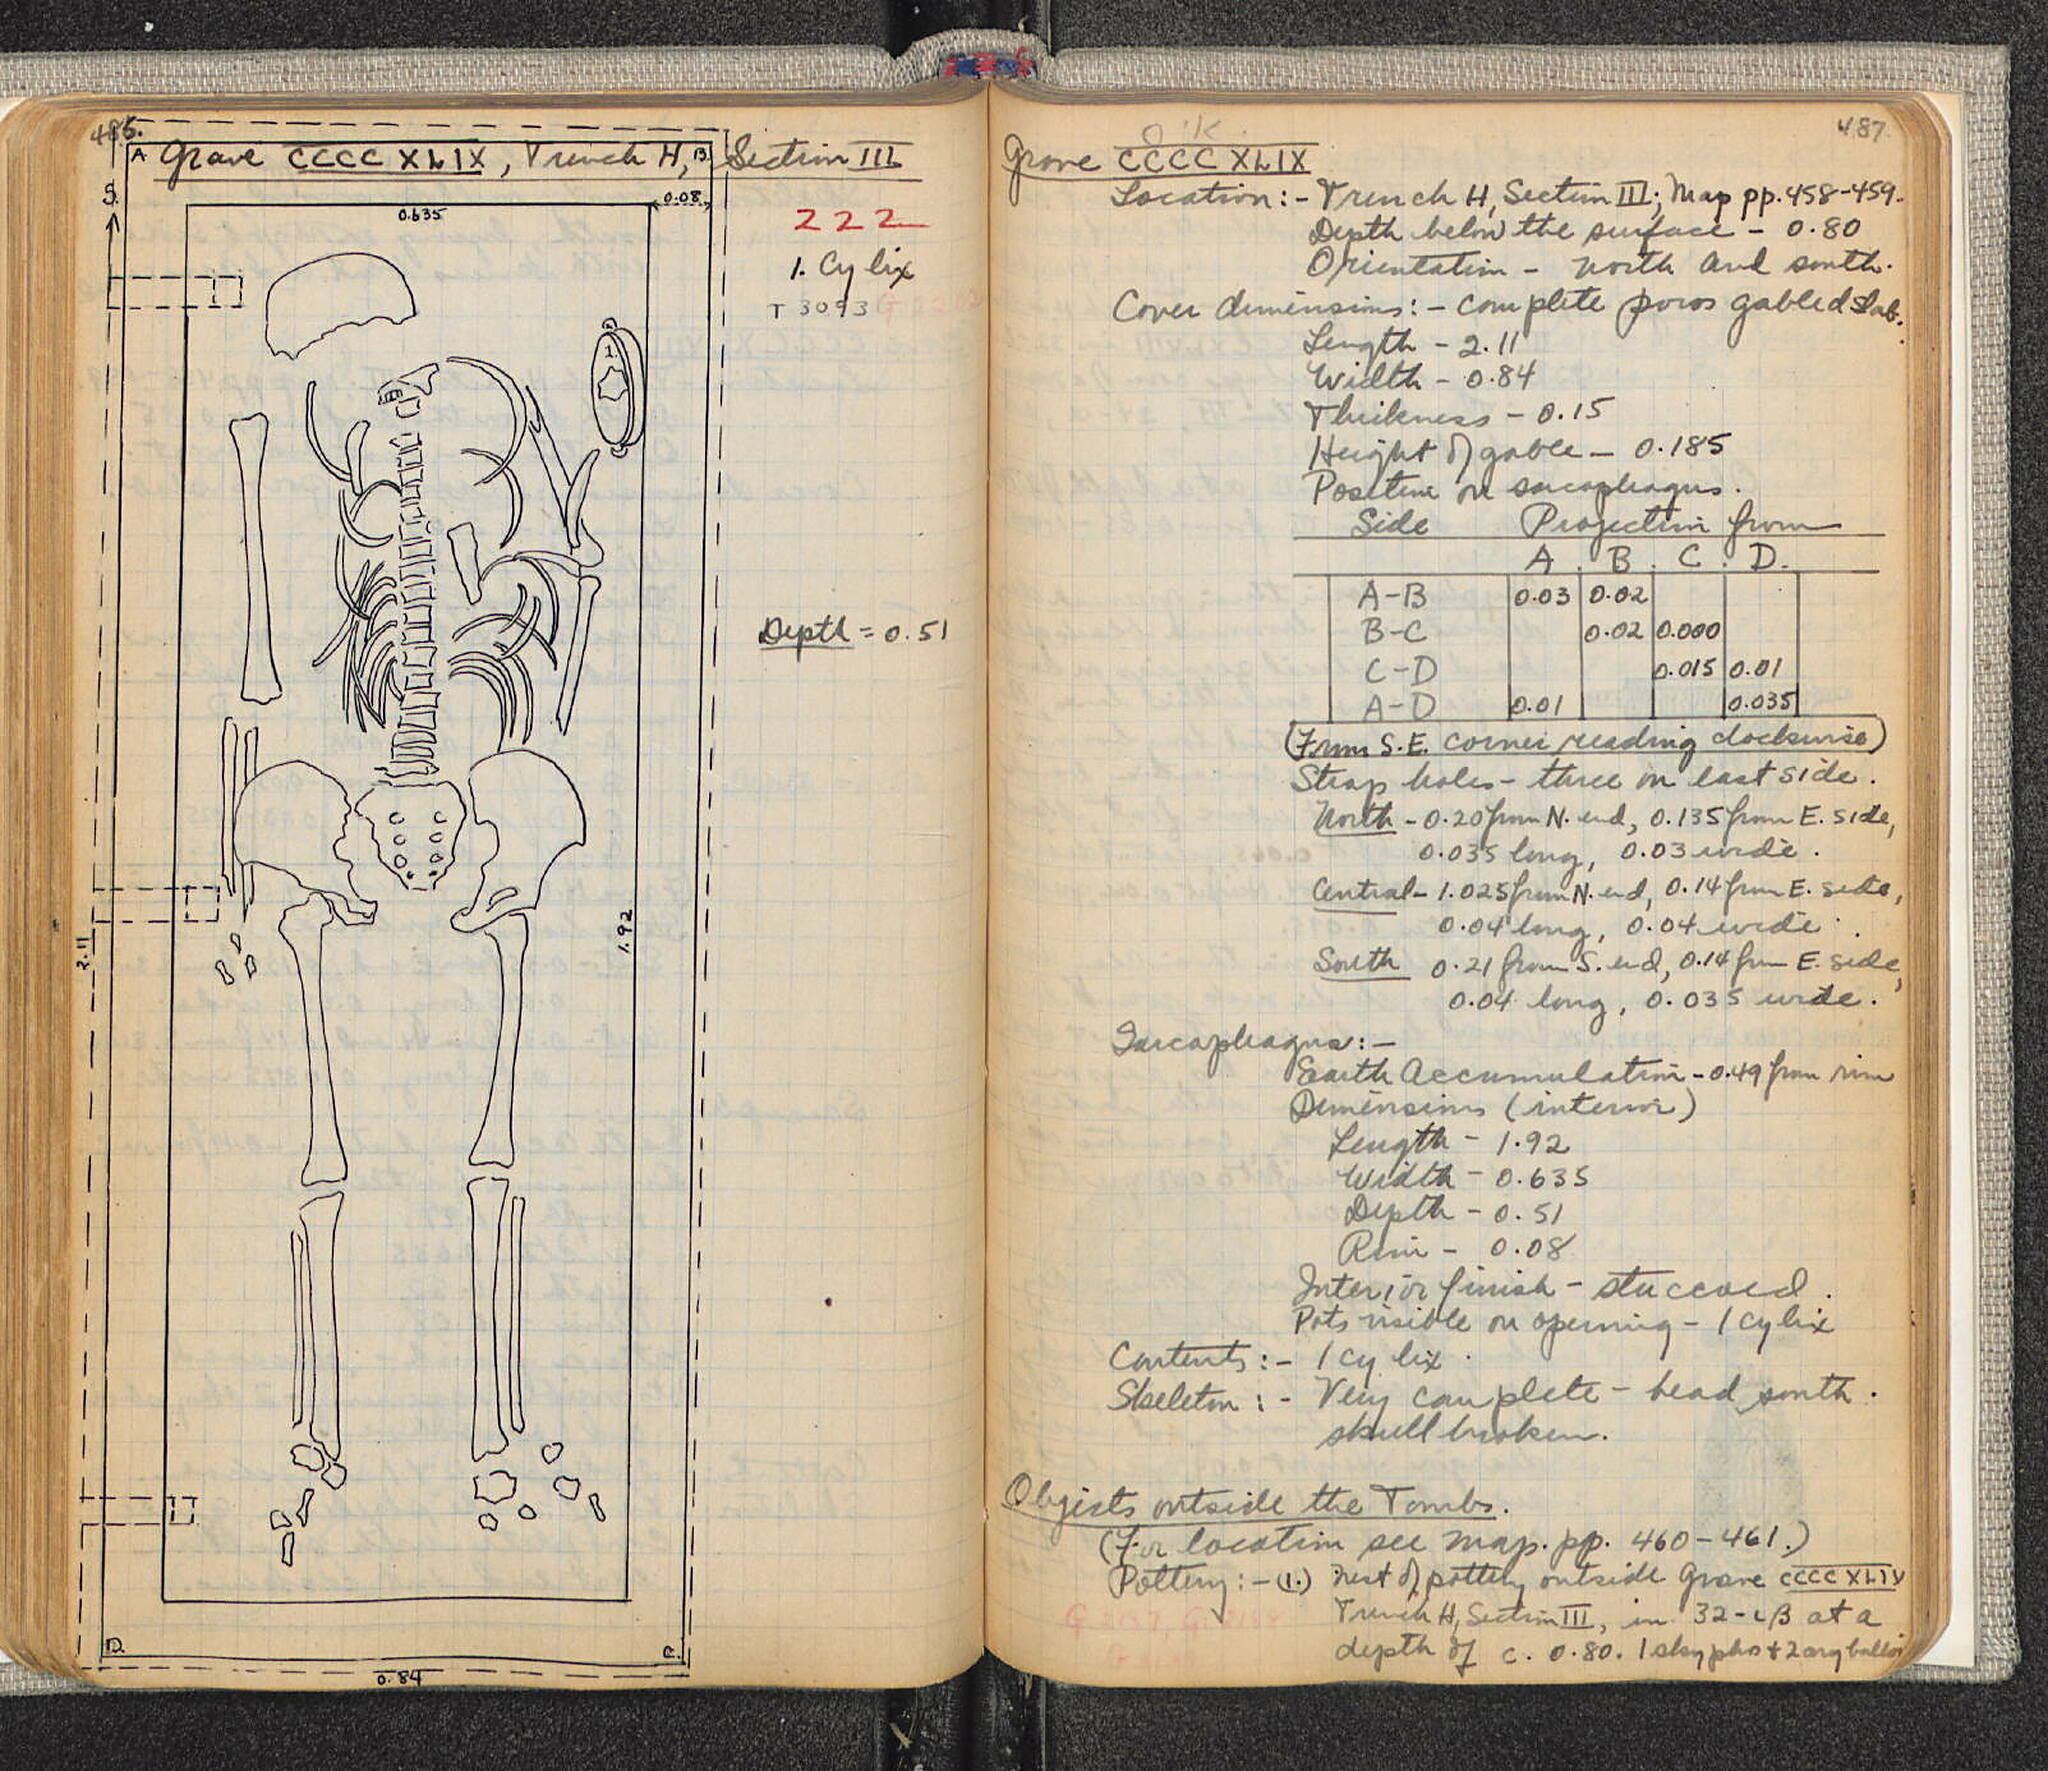 A. Grave CCCC XLIX, Trench H, B. Section III
S.
0.08
0.635
222
1. Cylix
T 3093
1.
Depth = 0.51
2.11
1.92
D.
C.
0.84
O.K.
487.
Grave CCCC XLIX
Location:- Trench H, Section III; Map pp. 458-459.
Depth below the surface - 0.80
Orientation - north and south.
Cover dimensions:- complete poros gabled slab.
Length - 2.11
Width - 0.84
Thickness - 0.15
Height of gable - 0.185
Position on sarcophagus.
Side Projection from
A. B. C. D.
A-B 0.03 0.02
B-C 0.02 0.000
C-D 0.015 0.01
A-D 0.01 0.035
(From S.E. corner reading clockwise)
Strap holes - three on east side.
North - 0.20 from N. end, 0.135 from E. side,
0.035 long, 0.03 wide.
Central - 1.025 from N. end, 0.14 from E. side,
0.04 long, 0.04 wide.
South 0.21 from S. end, 0.14 from E. side,
0.04 long, 0.035 wide.
Sarcophagus:-
Earth Accumulation - 0.49 from rim
Dimensions (interior)
Length - 1.92
Width - 0.635
Depth - 0.51
Rim - 0.08
Interior finish - stuccoed.
Pots visible on opening - 1 cylix
Contents:- 1 cylix.
Skeleton:- Very complete - head south.
skull broken.
Objects outside the Tombs.
(For location see map. pp. 460-461.)
Pottery:- (1.) Nest of pottery outside Grave CCCC XLIV
Trench H, Section III, in 32-LB at a
depth of c. 0.80. 1 skyphos + 2 aryballoi